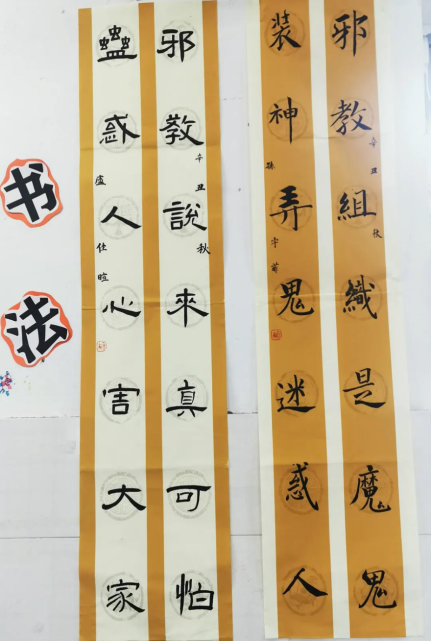 邪教組織是魔鬼
辛丑秋
裝神弄鬼迷惑人
邪教說來真可怕
辛丑秋
蠱惑人心害大家
書法